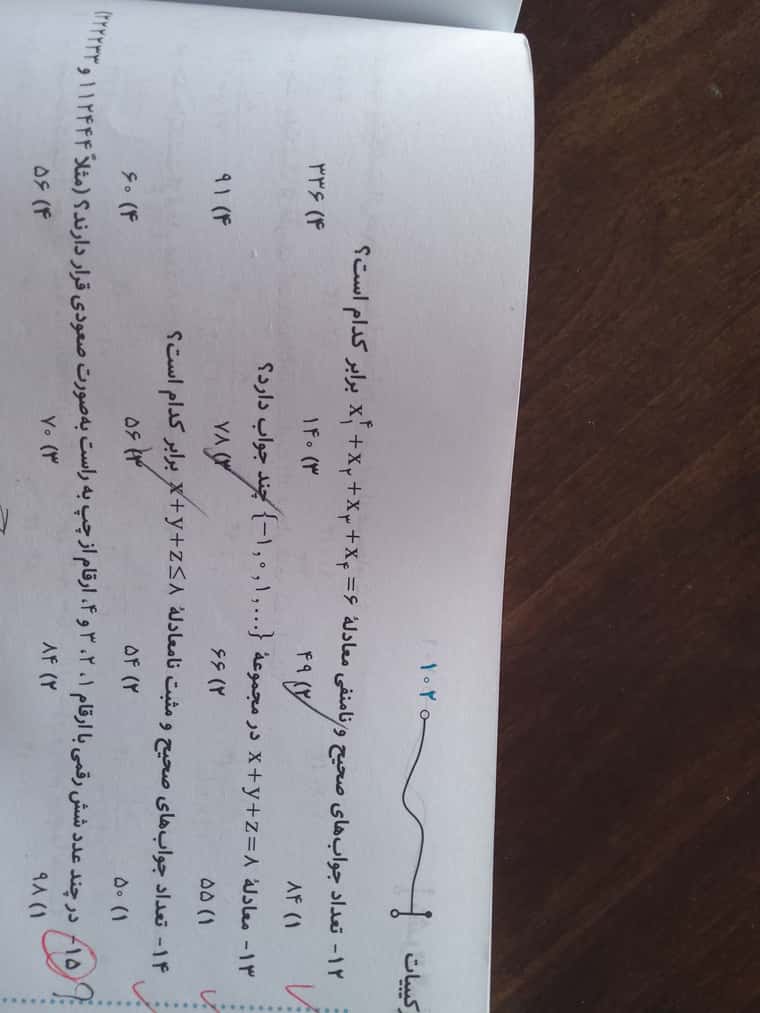 ۱۰۲
۱۲- تعداد جواب‌های صحیح و نامنفی معادلهٔ x₁⁴ + x₂ + x₃ + x₄ = ۶ برابر کدام است؟
۱) ۸۴ ۲) ۴۹ ۳) ۱۴۰ ۴) ۳۳۶
۱۳- معادلهٔ x + y + z = ۸ در مجموعهٔ {−۱, ۰, ۱, ...} چند جواب دارد؟
۱) ۵۵ ۲) ۶۶ ۳) ۷۸ ۴) ۹۱
۱۴- تعداد جواب‌های صحیح و مثبت نامعادلهٔ x + y + z ≤ ۸ برابر کدام است؟
۱) ۵۰ ۲) ۵۴ ۳) ۵۶ ۴) ۶۰
۱۵- در چند عدد شش رقمی با ارقام ۱، ۲، ۳ و ۴، ارقام از چپ به راست به‌صورت صعودی قرار دارند؟ (مثلاً ۱۱۲۴۴۴ و ۲۲۲۲۳۳)
۱) ۹۸ ۲) ۸۴ ۳) ۷۰ ۴) ۵۶